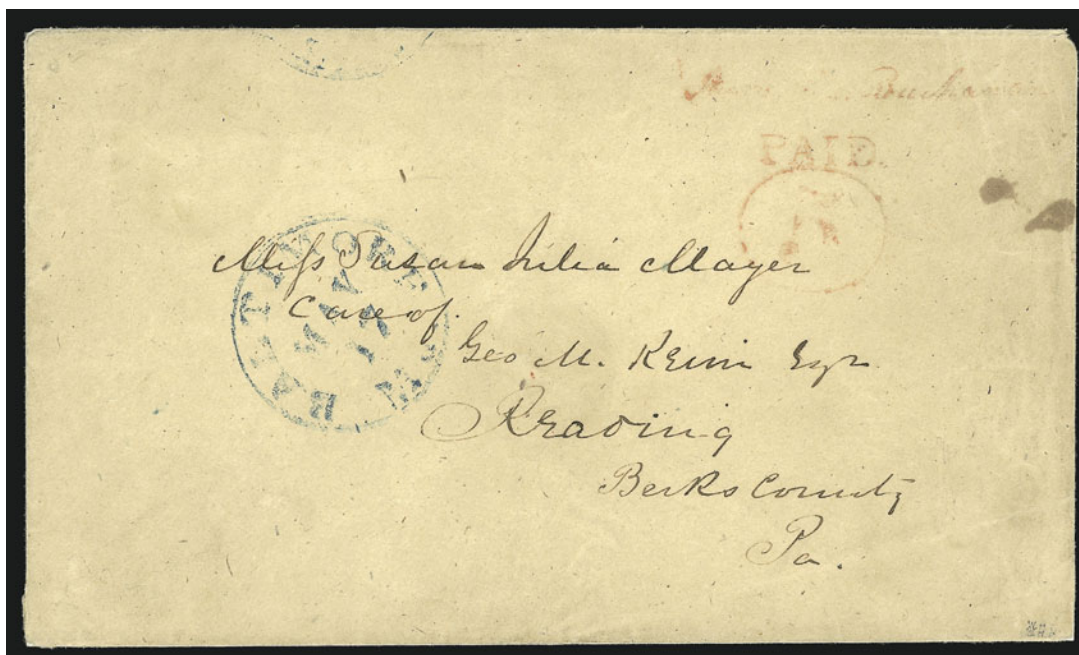 Buchanan
PAID
BALTIMORE Md.
MAY
Miss Susan Julia Mayer
Care of
Geo M. Keim Esqr
Reading
Berks County
Pa.